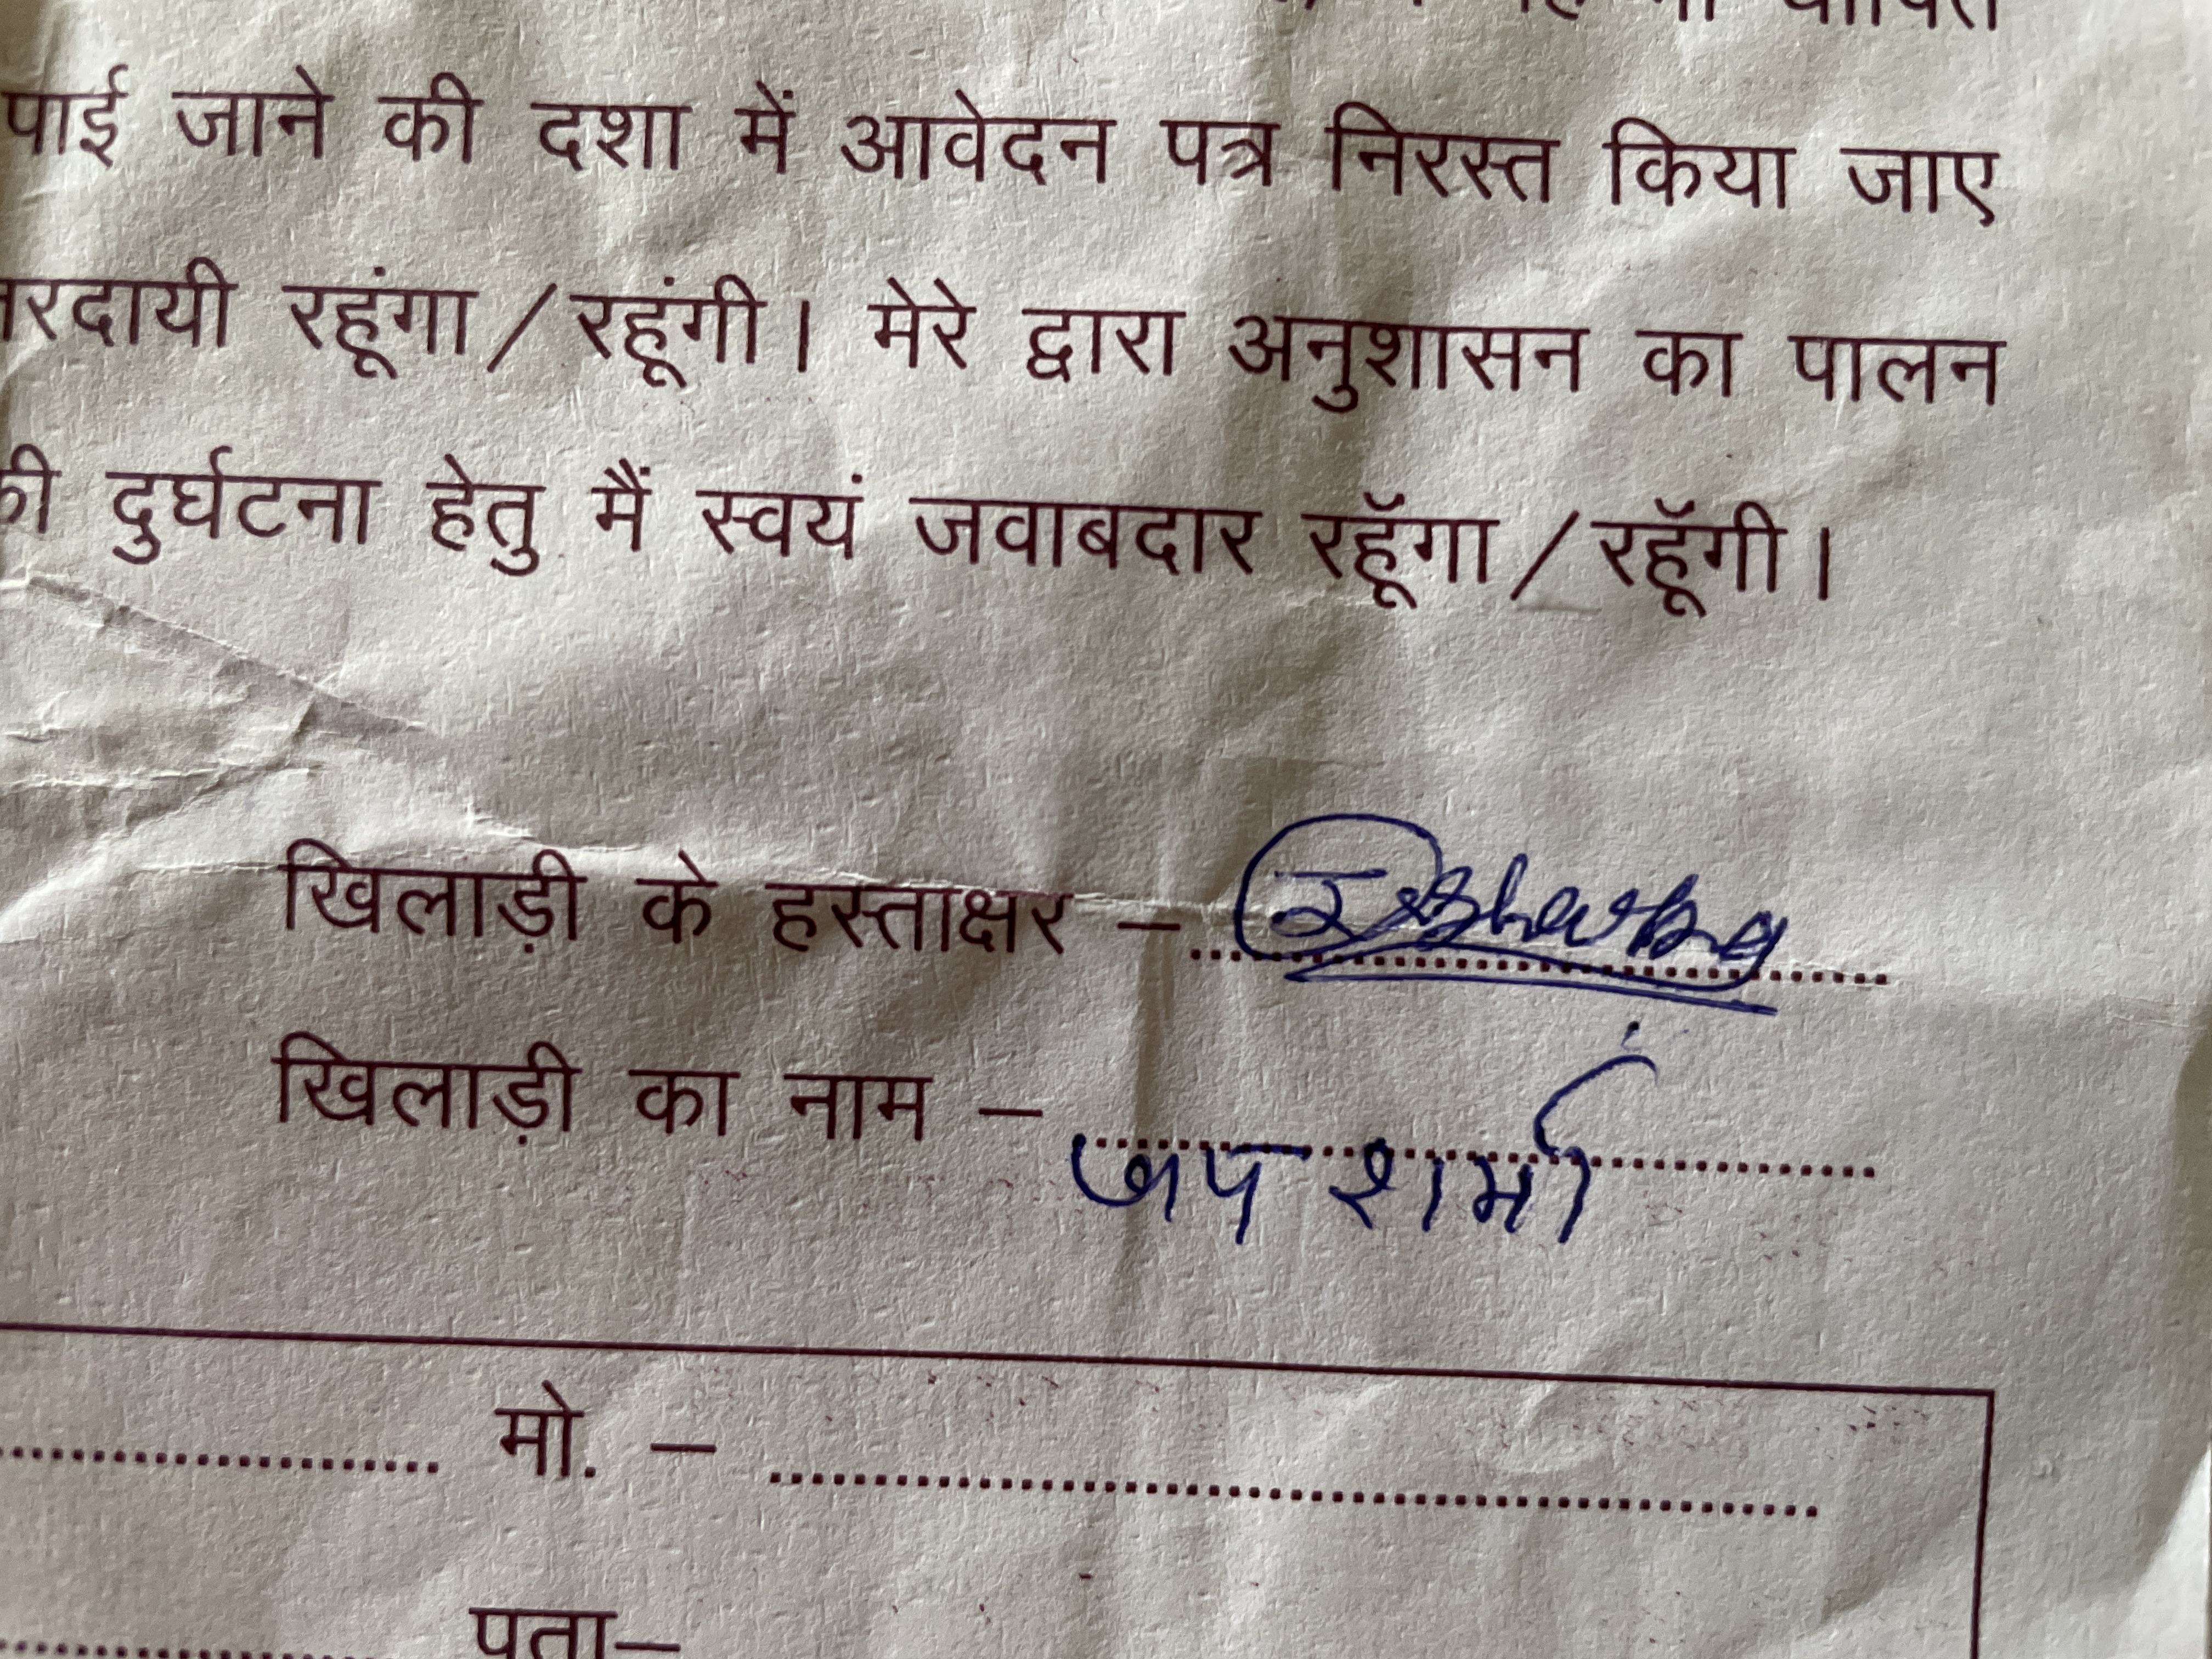 पाई जाने की दशा में आवेदन पत्र निरस्त किया जाए
रदायी रहूंगा/रहूंगी। मेरे द्वारा अनुशासन का पालन
की दुर्घटना हेतु मैं स्वयं जवाबदार रहूॅगा/रहूॅगी।
खिलाड़ी के हस्ताक्षर –
खिलाड़ी का नाम – जय शर्मा
मो. –
पता–